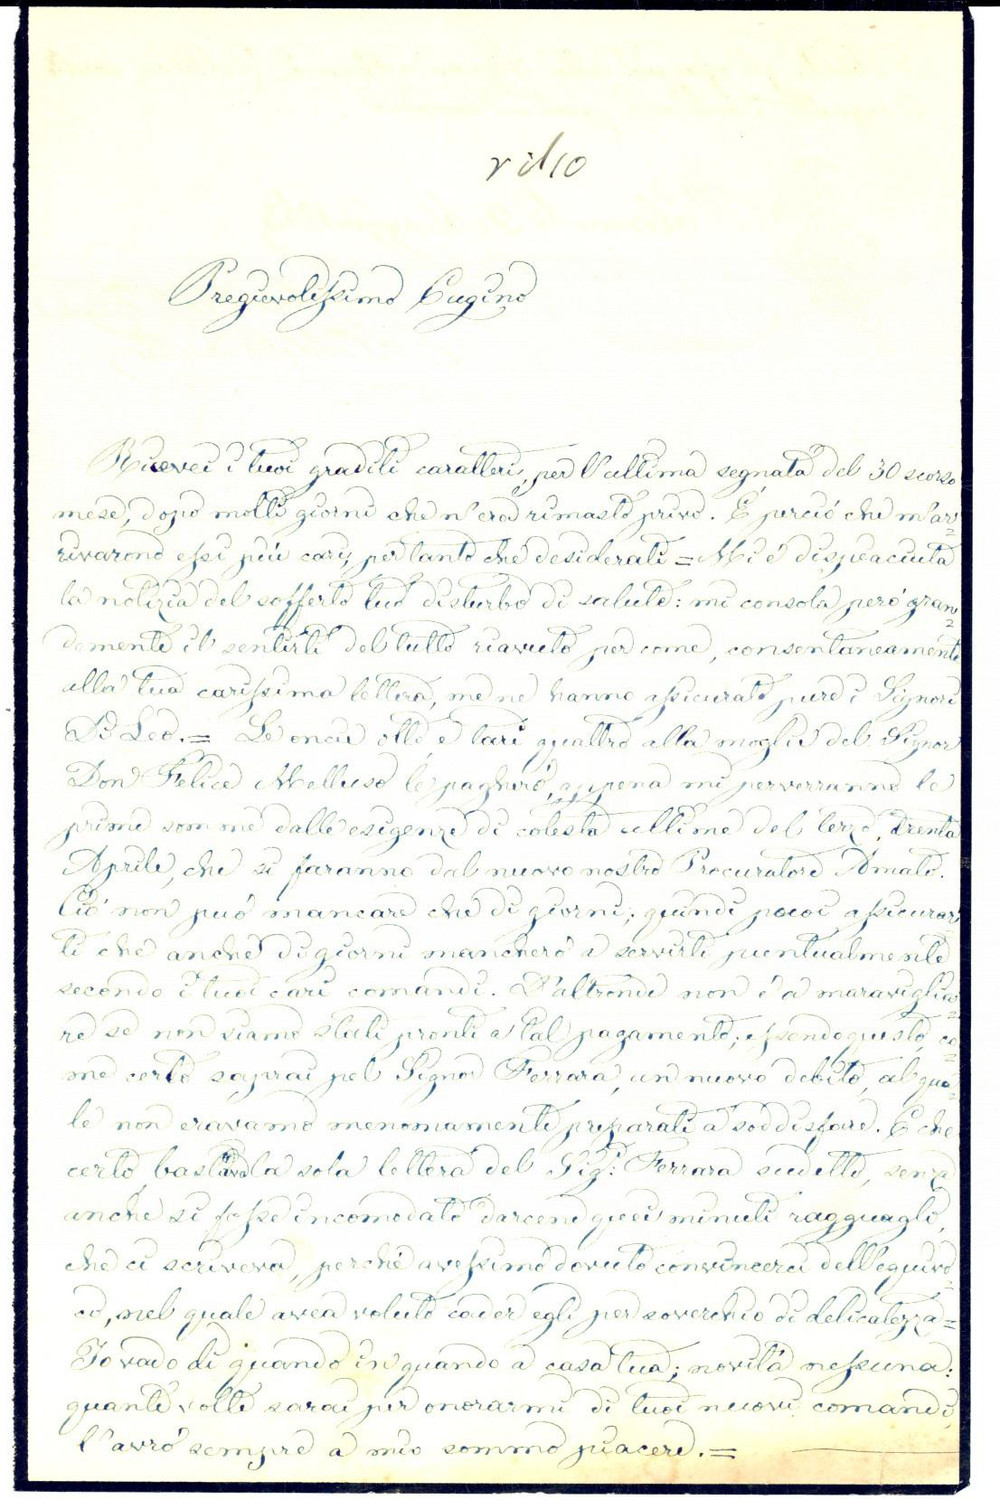 Pregievolissimo Cugino
Ricevei i tuoi graditi caratteri, per l'ultima segnata del 30 scorso
mese, dopo molti giorni che n'ero rimasto privo. È perciò che m'ar=
rivarono essi più cari, per tanto che desiderati = Mi è dispiaciuta
la notizia del sofferto tuo disturbo di salute: mi consola però gran=
demente il sentirti del tutto riavuto per come, consentaneamente
alla tua carissima lettera, me ne hanno assicurato pure i Signori
Di Leo. = Le oncie otto e tarì quattro alla moglie del Signor
Don Felice Melluso le pagherò, appena mi perverranno le
prime somme dalle esigenze di cotesta ultime del terzo, trenta
Aprile, che si faranno dal nuovo nostro Procuratore Amato.
Ciò non può mancare che di giorni; quindi puoi assicurar
ti che anche di giorni mancherò a servirti puntualmente
secondo i tuoi cari comandi. D'altronde non è a maraviglia=
re se non siamo stati pronti a tal pagamento; essendo questo, co=
me certo saprai pel Signor Ferrara, un nuovo debito, al qua=
le non eravamo menomamente preparati a soddisfare. E che
certo, bastava la sola lettera del Sig.r Ferrara sudetto, senza
anche si fosse incomodato darcene quei minuti ragguagli,
che ci scriveva, perché avessimo dovuto convincerci dell'equivo=
co, nel quale avea voluto cader egli per soverchio di delicatezza=
Io vado di quando in quando a casa tua; novità nessuna:
quante volte sarai per onorarmi di tuoi nuovi comandi,
l'avrò sempre a mio sommo piacere. =